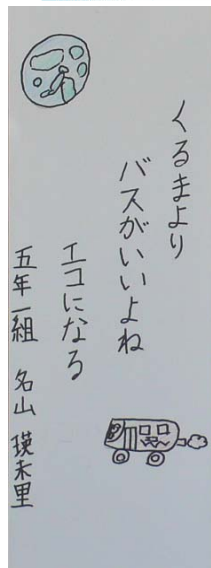 くるまより
バスがいいよね
エコになる
五年一組 名山 瑛未里